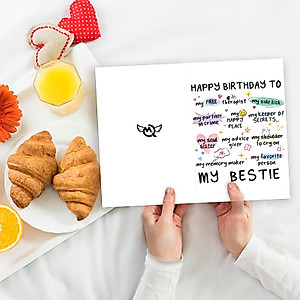 HAPPY BIRTHDAY TO
my FREE therapist my side kick
my partner in crime my HAPPY PLACE my keeper of SECRETS...
my soul sister my advice giver my shoulder to cry on
my memory maker my favorite person
MY BESTIE